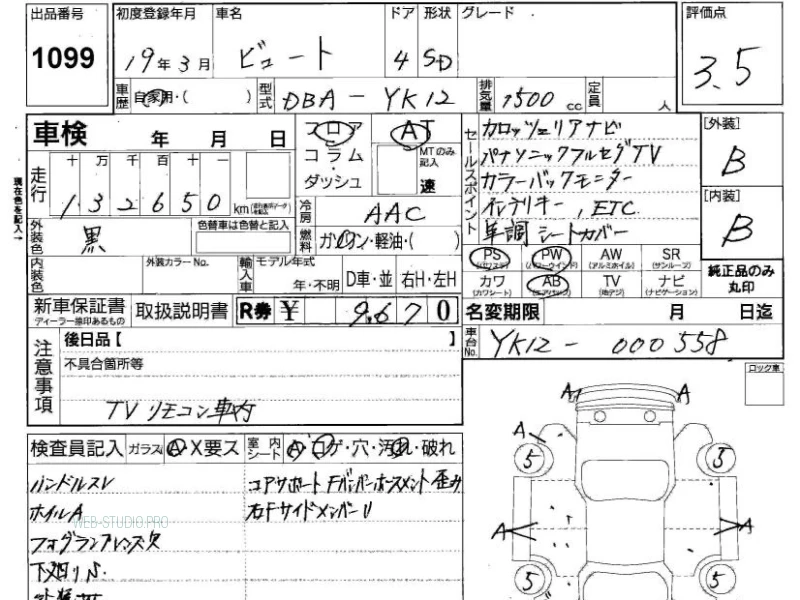 出品番号
1099
初度登録年月
19年3月
車名
ビュート
ドア
4
形状
SD
グレード
評価点
3.5
車歴
自家用・( )
型式
DBA-YK12
排気量
1500 cc
定員
人
車検 年 月 日
フロア
AT
コラム
・
ダッシュ
MTのみ記入
速
走行
十 万 千 百 十 一
132650 km
現在色を記入→
外装色
黒
色替車は色替と記入
冷房
AAC
燃料
ガソリン・軽油・( )
セールスポイント
カロッツェリアナビ
パナソニックフルセグTV
カラーバックモニター
インテリキー, ETC
革調シートカバー
[外装]
B
[内装]
B
内装色
外装カラーNo.
輸入車
モデル年式
年・不明
D車・並
右H・左H
PS
(パワステ)
PW
(パワーウインド)
AW
(アルミホイル)
SR
(サンルーフ)
カワ
(カワシート)
AB
(エアバック)
TV
(地デジ)
ナビ
(ナビゲーション)
純正品のみ丸印
新車保証書
ディーラー捺印あるもの
取扱説明書
R券 ¥ 9670
名変期限 月 日迄
注意事項
後日品【 】
不具合箇所等
TVリモコン車内
車台No.
YK12-000558
ロック車
検査員記入
ガラス
A・X要ス
室内シート
A・コゲ・穴・汚れ・破れ
ハンドルスレ
ホイルA
フォグランプレンズ欠
コアサポートFバンパーホースメント歪み
右FサイドメンバーU
WEB-STUDIO.PRO
A A
A
5 5
A A
5 5